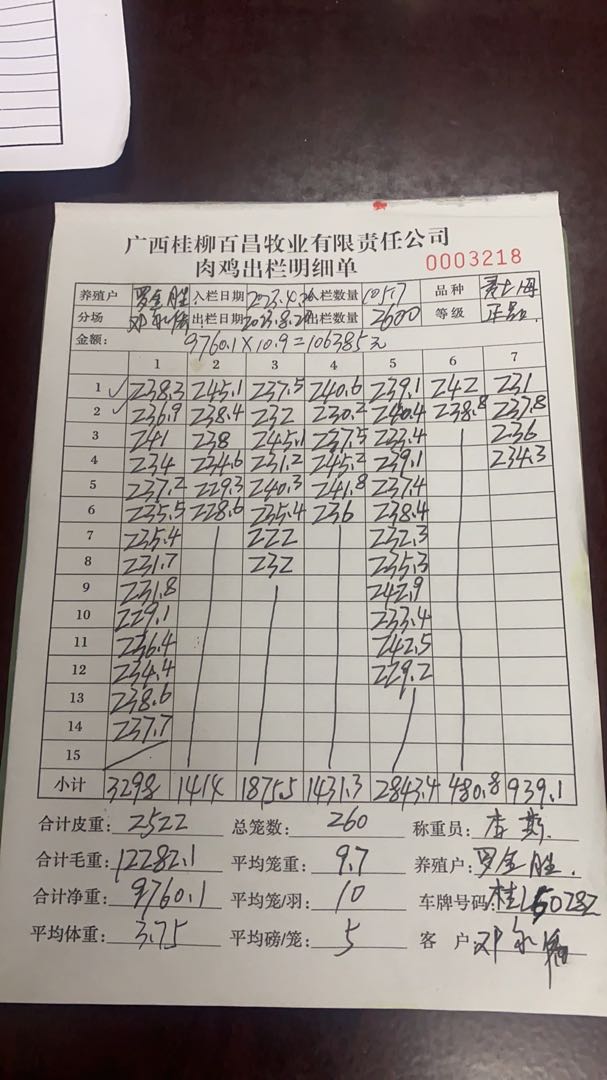 广西桂柳百昌牧业有限责任公司
肉鸡出栏明细单 0003218
养殖户 罗金胜 入栏日期 2023.4.26 入栏数量 10517 品种
分场 邓永 出栏日期 2023.8.2 出栏数量 2600 等级 正品
金额: 9760.1×10.9=106385元
1 2 3 4 5 6 7
1 238.3 245.1 237.5 240.6 239.1 242 231
2 236.9 238.4 232 230.2 240.4 238.8 237.8
3 241 238 245.1 237.5 233.4 236
4 234 234.6 231.2 245.2 239.1 234.3
5 237.2 229.3 240.3 241.8 237.4
6 235.5 228.6 235.4 236 238.4
7 235.4 222 232.3
8 231.7 232 235.3
9 231.8 242.9
10 229.1 233.4
11 236.4 242.5
12 234.4 229.2
13 238.6
14 237.7
15
小计 3298 1414 1875.5 1431.3 2843.4 480.8 939.1
合计皮重: 2522 总笼数: 260 称重员: 李
合计毛重: 12282.1 平均笼重: 9.7 养殖户: 罗金胜.
合计净重: 9760.1 平均笼/羽: 10 车牌号码: 桂L50282
平均体重: 3.75 平均磅/笼: 5 客 户: 邓永